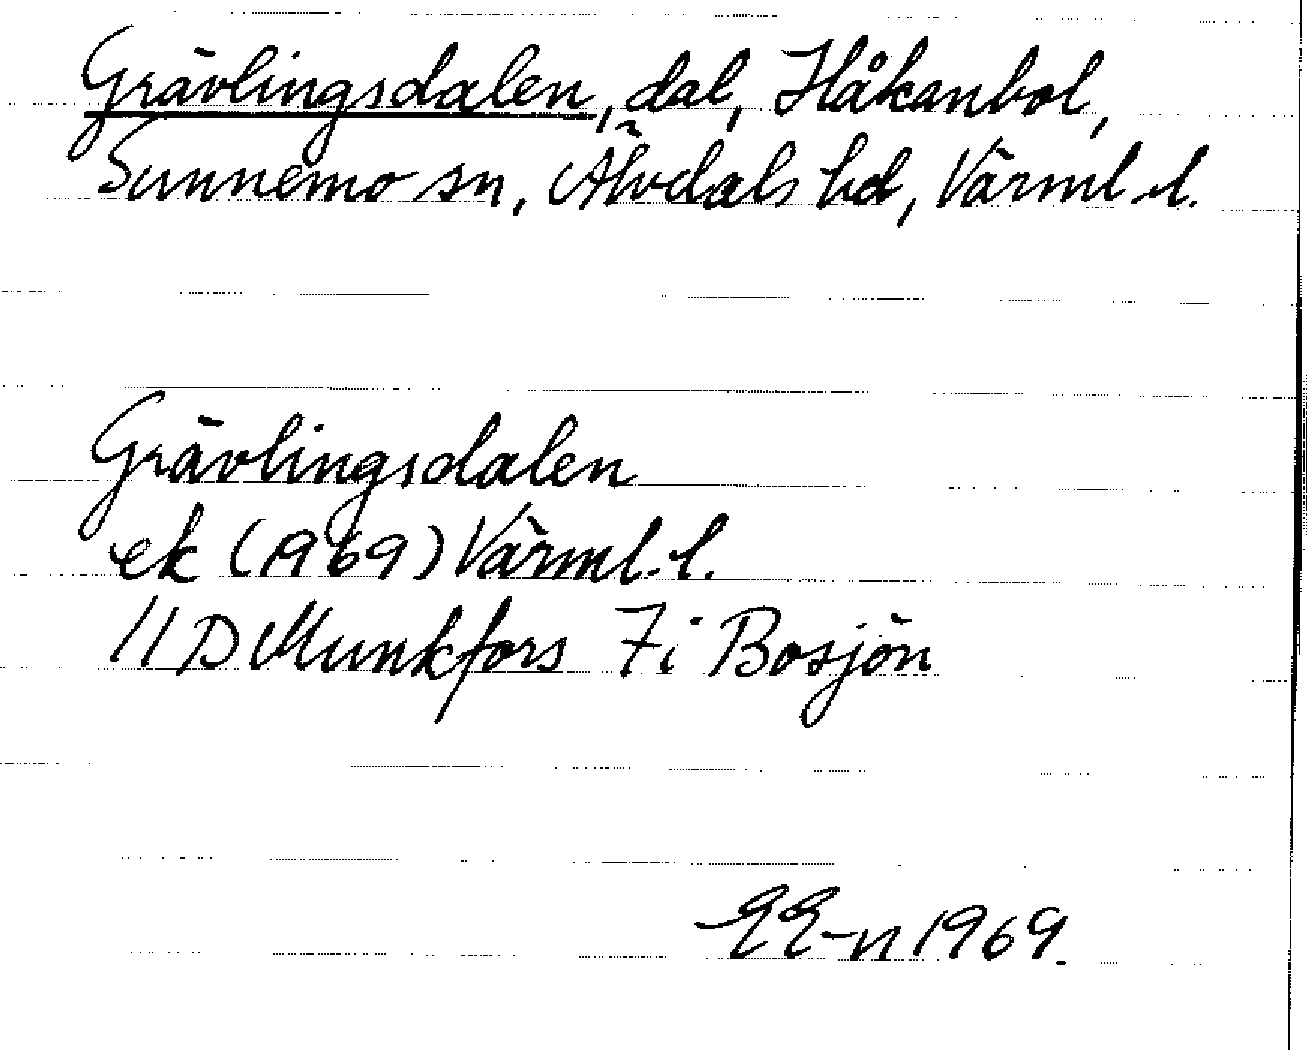 Grävlingsdalen, dal, Håkanbol,
Sunnemo sn, Älvdals hd, Värml. l.
Grävlingsdalen
ek (1969) Värml. l.
11D Munkfors 7i Bosjön
EE-n 1969.